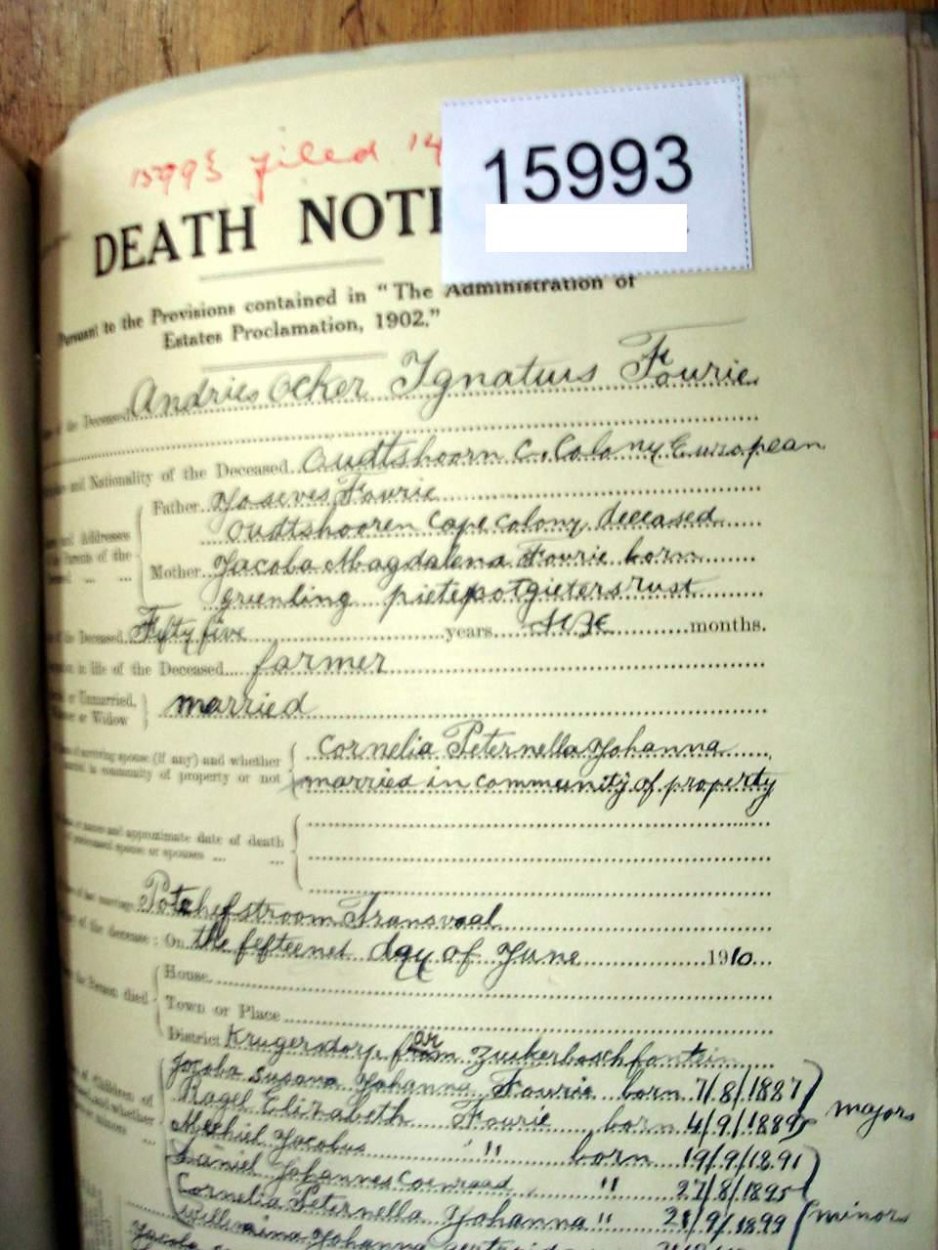 15993 filed 14
15993
DEATH NOTI
Pursuant to the Provisions contained in "The Administration of
Estates Proclamation, 1902."
the Deceased Andries Ocker Ignatius Fourie
and Nationality of the Deceased Oudtshoorn C. Colony European
Father Joseves Fourie
Addresses
Oudtshooren Cape Colony deceased
Parents of the
Mother Jacoba Magdalena Fourie born
greenling pietepotgietersrust
of the Deceased Fifty five years months.
in life of the Deceased farmer
or Unmarried,
or Widow
married
of surviving spouse (if any) and whether
Cornelia Peternella Johanna
in community of property or not
married in community of property
names and approximate date of death
spouse or spouses
Potchefstroom Transvaal
of the decease: On the fefteenet day of June 1910
the Person died
House
Town or Place
District Krugersdorp Zuikerboschfontein
of Children of
and whether
Jacoba Susana Johanna Fourie born 7/8/1887
Ragel Elizabeth Fourie born 4/9/1889
majors
Mechiel Jacobus " born 19/9/1891
Daniel Johannes Coenraad " 27/8/1895
Cornelia Peternella Johanna " 21/9/1899
minors
Willemina Johanna
Jacoba